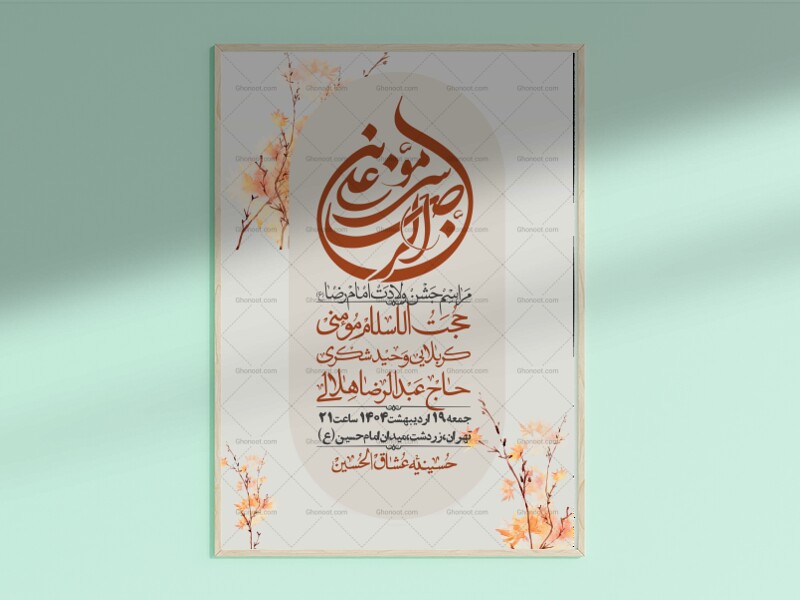 مراسم جشن ولادت امام رضا
حجت الاسلام مؤمنی
کربلایی وحید شکری
حاج عبدالرضا هلالی
جمعه ۱۹ اردیبهشت ۱۴۰۴ ساعت ۲۱
تهران، زردشت، میدان امام حسین (ع)
حسینیه عشاق الحسین
Ghonoot.com